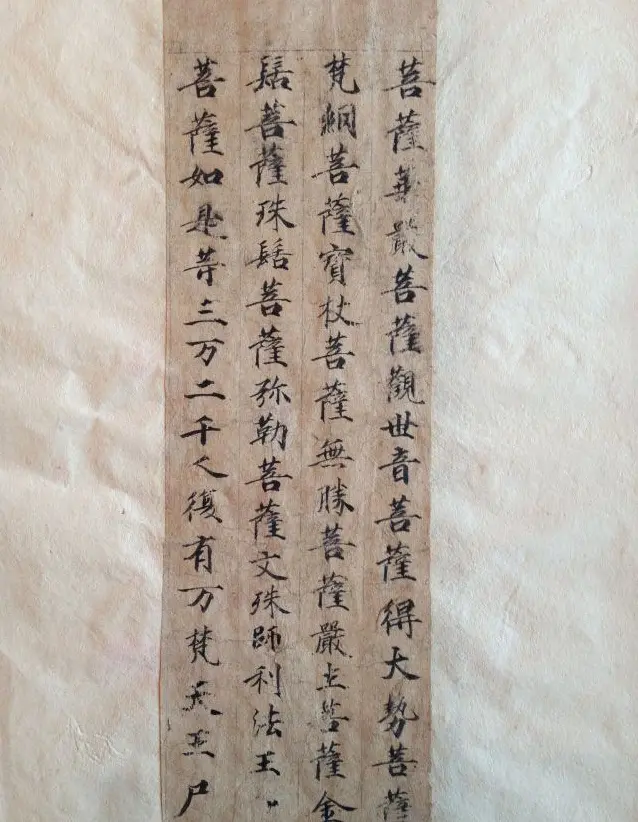 菩薩華嚴菩薩觀世音菩薩得大勢菩薩
梵網菩薩寶杖菩薩無勝菩薩嚴土菩薩金
髻菩薩珠髻菩薩弥勒菩薩文殊師利法王
菩薩如是等三万二千人復有万梵天王尸